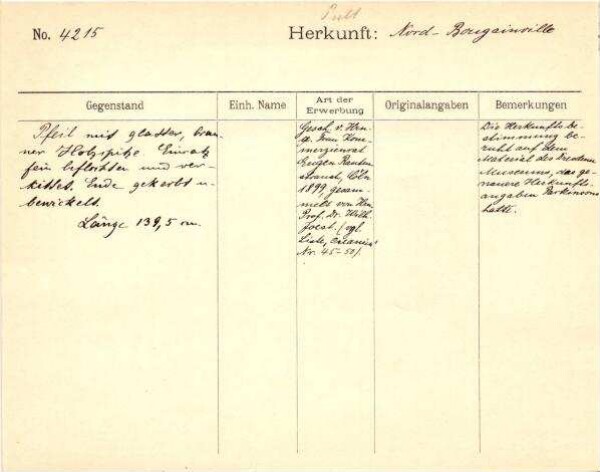 Pult
No. 4215
Herkunft: Nord-Bougainville
Gegenstand
Einh. Name
Art der Erwerbung
Originalangaben
Bemerkungen
Pfeil mit glatter, brau-
ner Holzspitze. Einsatz
fein beflochten und ver-
kittet. Ende gekerbt u.
bewickelt.
Länge 139,5 cm.
Gesch. v. Hrn.
u. Frau Kom-
merzienrat
Eugen Rauten-
strauch, Cöln
1899, gesam-
melt von Hrn.
Prof. Dr. Wilh.
Joest. (vgl.
Liste,
Nr. 45-50).
Die Herkunftsbe-
stimmung be-
ruht auf dem
Material des Dresdener
Museums, das ge-
nauere Herkunfts-
angaben Parkinsons
hatte.